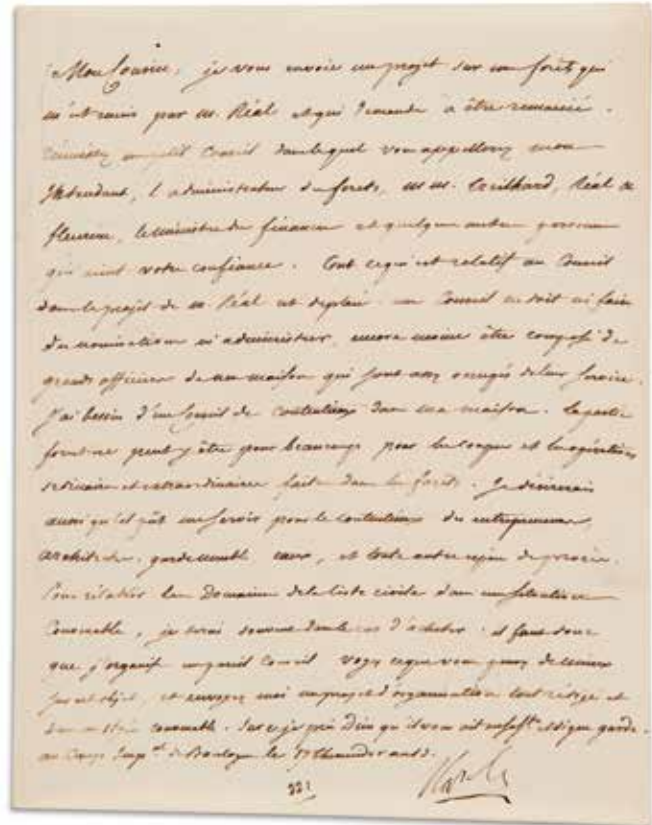 Mon Cousin, je vous envoie un projet sur mes forêts qui
m'est remis par M. Réal et qui demande à être remanié.
Réunissez un petit Conseil dans lequel vous appellerez mon
Intendant, l'administrateur des forêts, MM. Treilhard, Réal et
fleurieu, le ministre des finances et quelques autres personnes
qui aient votre confiance. Tout ce qui est relatif au Conseil
dans le projet de M. Réal est déplacé. un Conseil ne doit ni faire
des nominations ni administrer, encore moins être composé de
grands officiers de ma maison qui sont assez occupés de leur service.
J'ai besoin d'un Conseil de contentieux dans ma maison. La partie
forêts ne peut y être pour beaucoup pour les coupes et les opérations
ordinaires et extraordinaires faites dans les forêts. Je désirerais
aussi qu'il pût me servir pour le contentieux des entrepreneurs,
architectes, garde meuble, eaux, et toute autre espèce de procès.
Pour rétablir les Domaines de la liste civile dans une situation
Convenable, je serai souvent dans le cas d'acheter. il faut donc
que j'organise un pareil Conseil. Voyez ce que vous pensez de mieux
sur cet objet, et envoyez moi un projet d'organisation tout rédigé et
dans un style convenable. Sur ce je prie Dieu qu'il vous ait en sa Ste et digne garde.
au Camp Impal de Boulogne le Thermidor an 13.
221